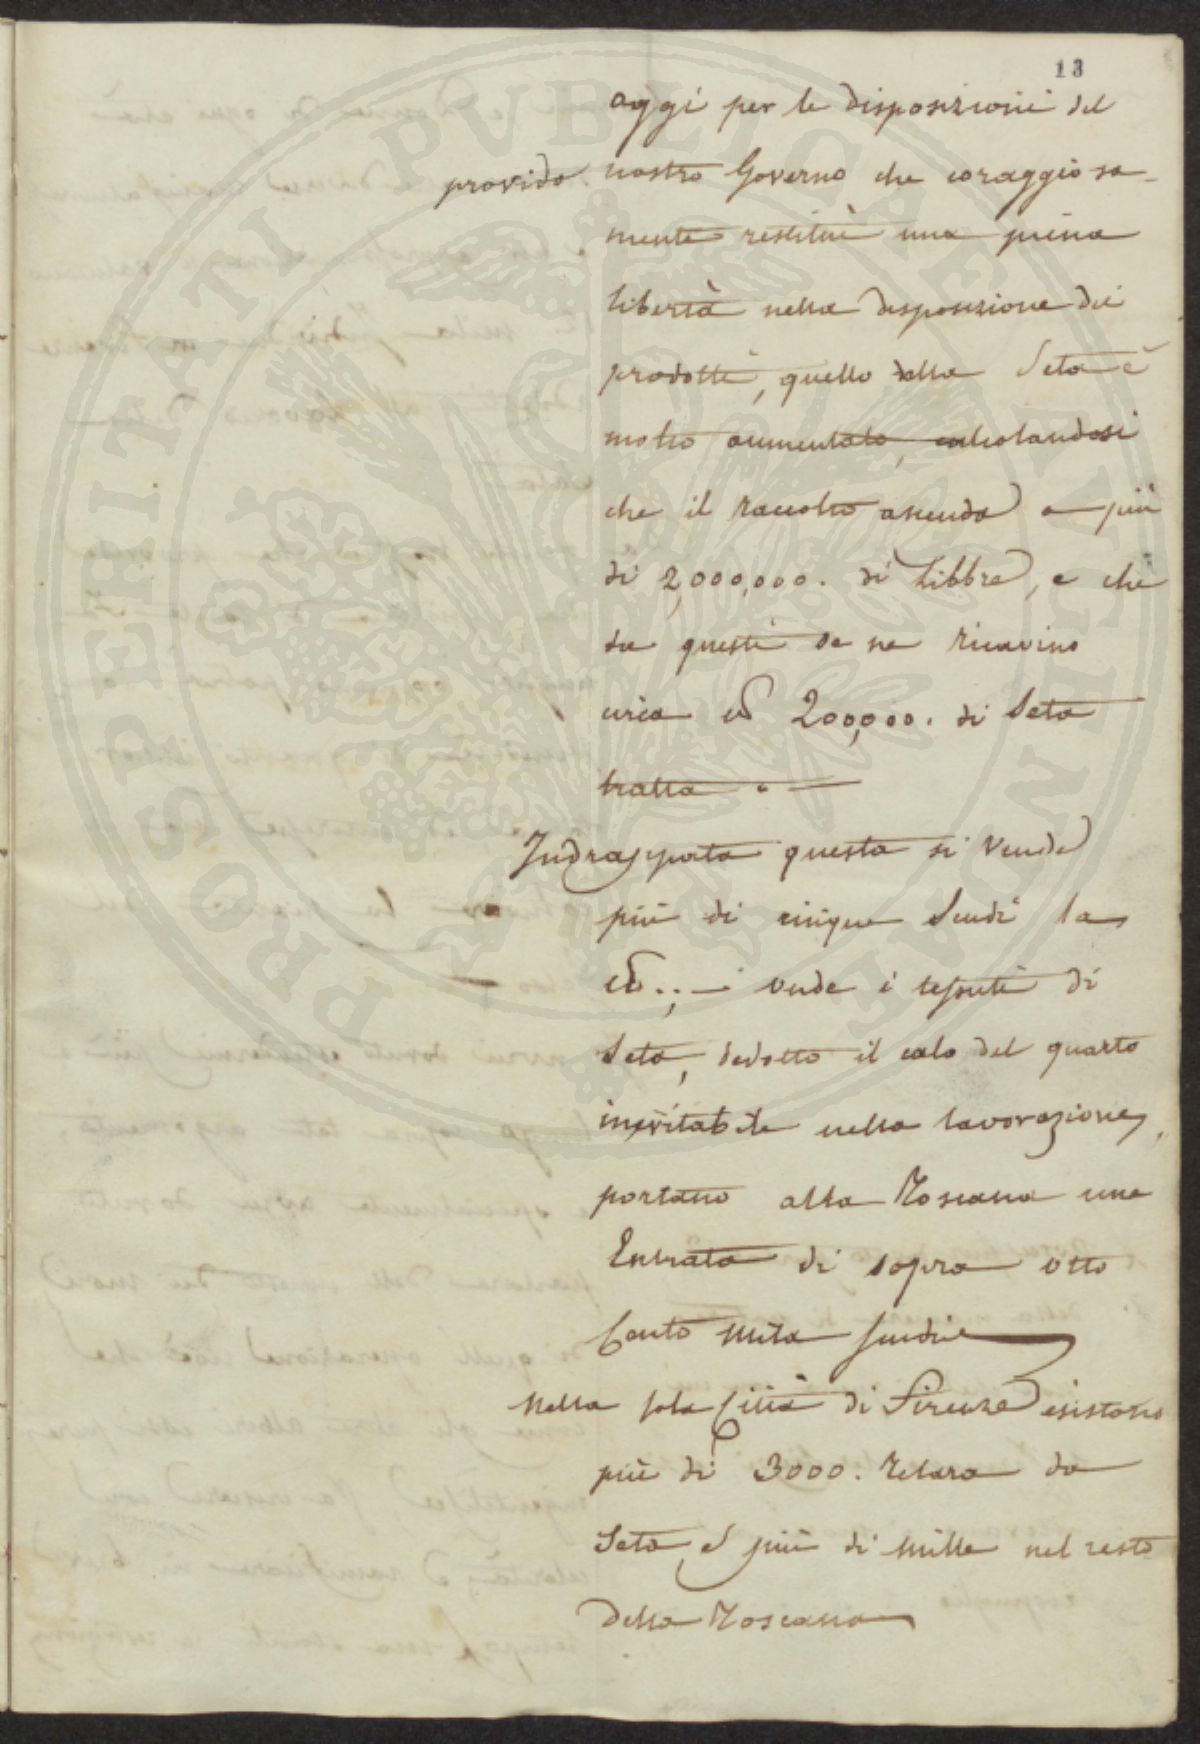 13
oggi per le disposizioni del
provido nostro Governo che coraggiosa-
mente restituì una piena
libertà nella disposizione dei
prodotti, quello della Seta è
molto aumentato, calcolandosi
che il raccolto ascenda a più
di 2,000,000. di Libbre, e che
da questi se ne ricavino
circa 200,000. di Seta
tratta. —
Indrappata questa si vende
più di cinque Scudi la
onde i tessuti di
Seta, dedotto il calo del quarto
inevitabile nella lavorazione,
portano alla Toscana una
Entrata di sopra otto
Cento mila scudi
Nella sola Città di Firenze esistono
più di 3000. Telara da
Seta, e più di mille nel resto
della Toscana
PROSPERITATI PUBLICAE AUGENDAE